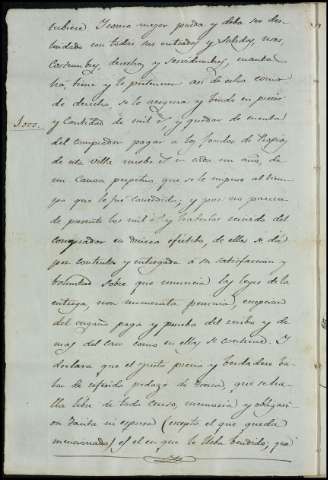 tubiere Y como mejor pueda y deba ser des-
lindado con todas sus entradas y salidas, usos,
costumbres, derechos y servidumbres, cuantas
há, tiene y le pertenecen asi de echo como
de derecho se lo asegura y vende en precio
1.000.
y cantidad de mil r.s, y quedar de cuenta
del comprador pagar a los fondos de Propios
de esta villa nuebe r.s en cada un año, de
un Canon perpetuo que se le impuso al tiem-
po que le fué concedido; y pues no parece
de presente los mil r.s y haberlos recivido del
comprador en dinero efectibo, de ellos se dá
por contenta y entregada á su satisfaccion y
boluntad sobre que renuncia las leyes de la
entrega, non numerata pecunia, excepcion
del engaño paga y prueba del recibo y de
mas del caso como en ellas se contiene. Y
declara que el justo precio y berdadero ba-
lor del referido pedazo de tierra, que se ha-
lla libre de todo censo, memoria y obligaci-
on tacita ni espresa (excepto el que queda
mencionado) es el en que lo lleba bendido, que